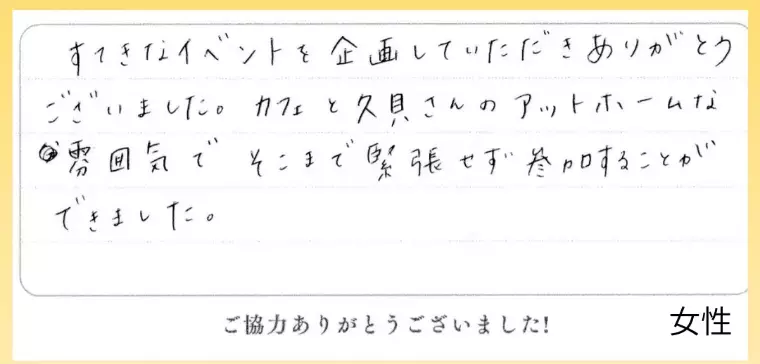 すてきなイベントを企画していただきありがとう
ございました。カフェと久貝さんのアットホームな
雰囲気でそこまで緊張せず参加することが
できました。
ご協力ありがとうございました!
女性